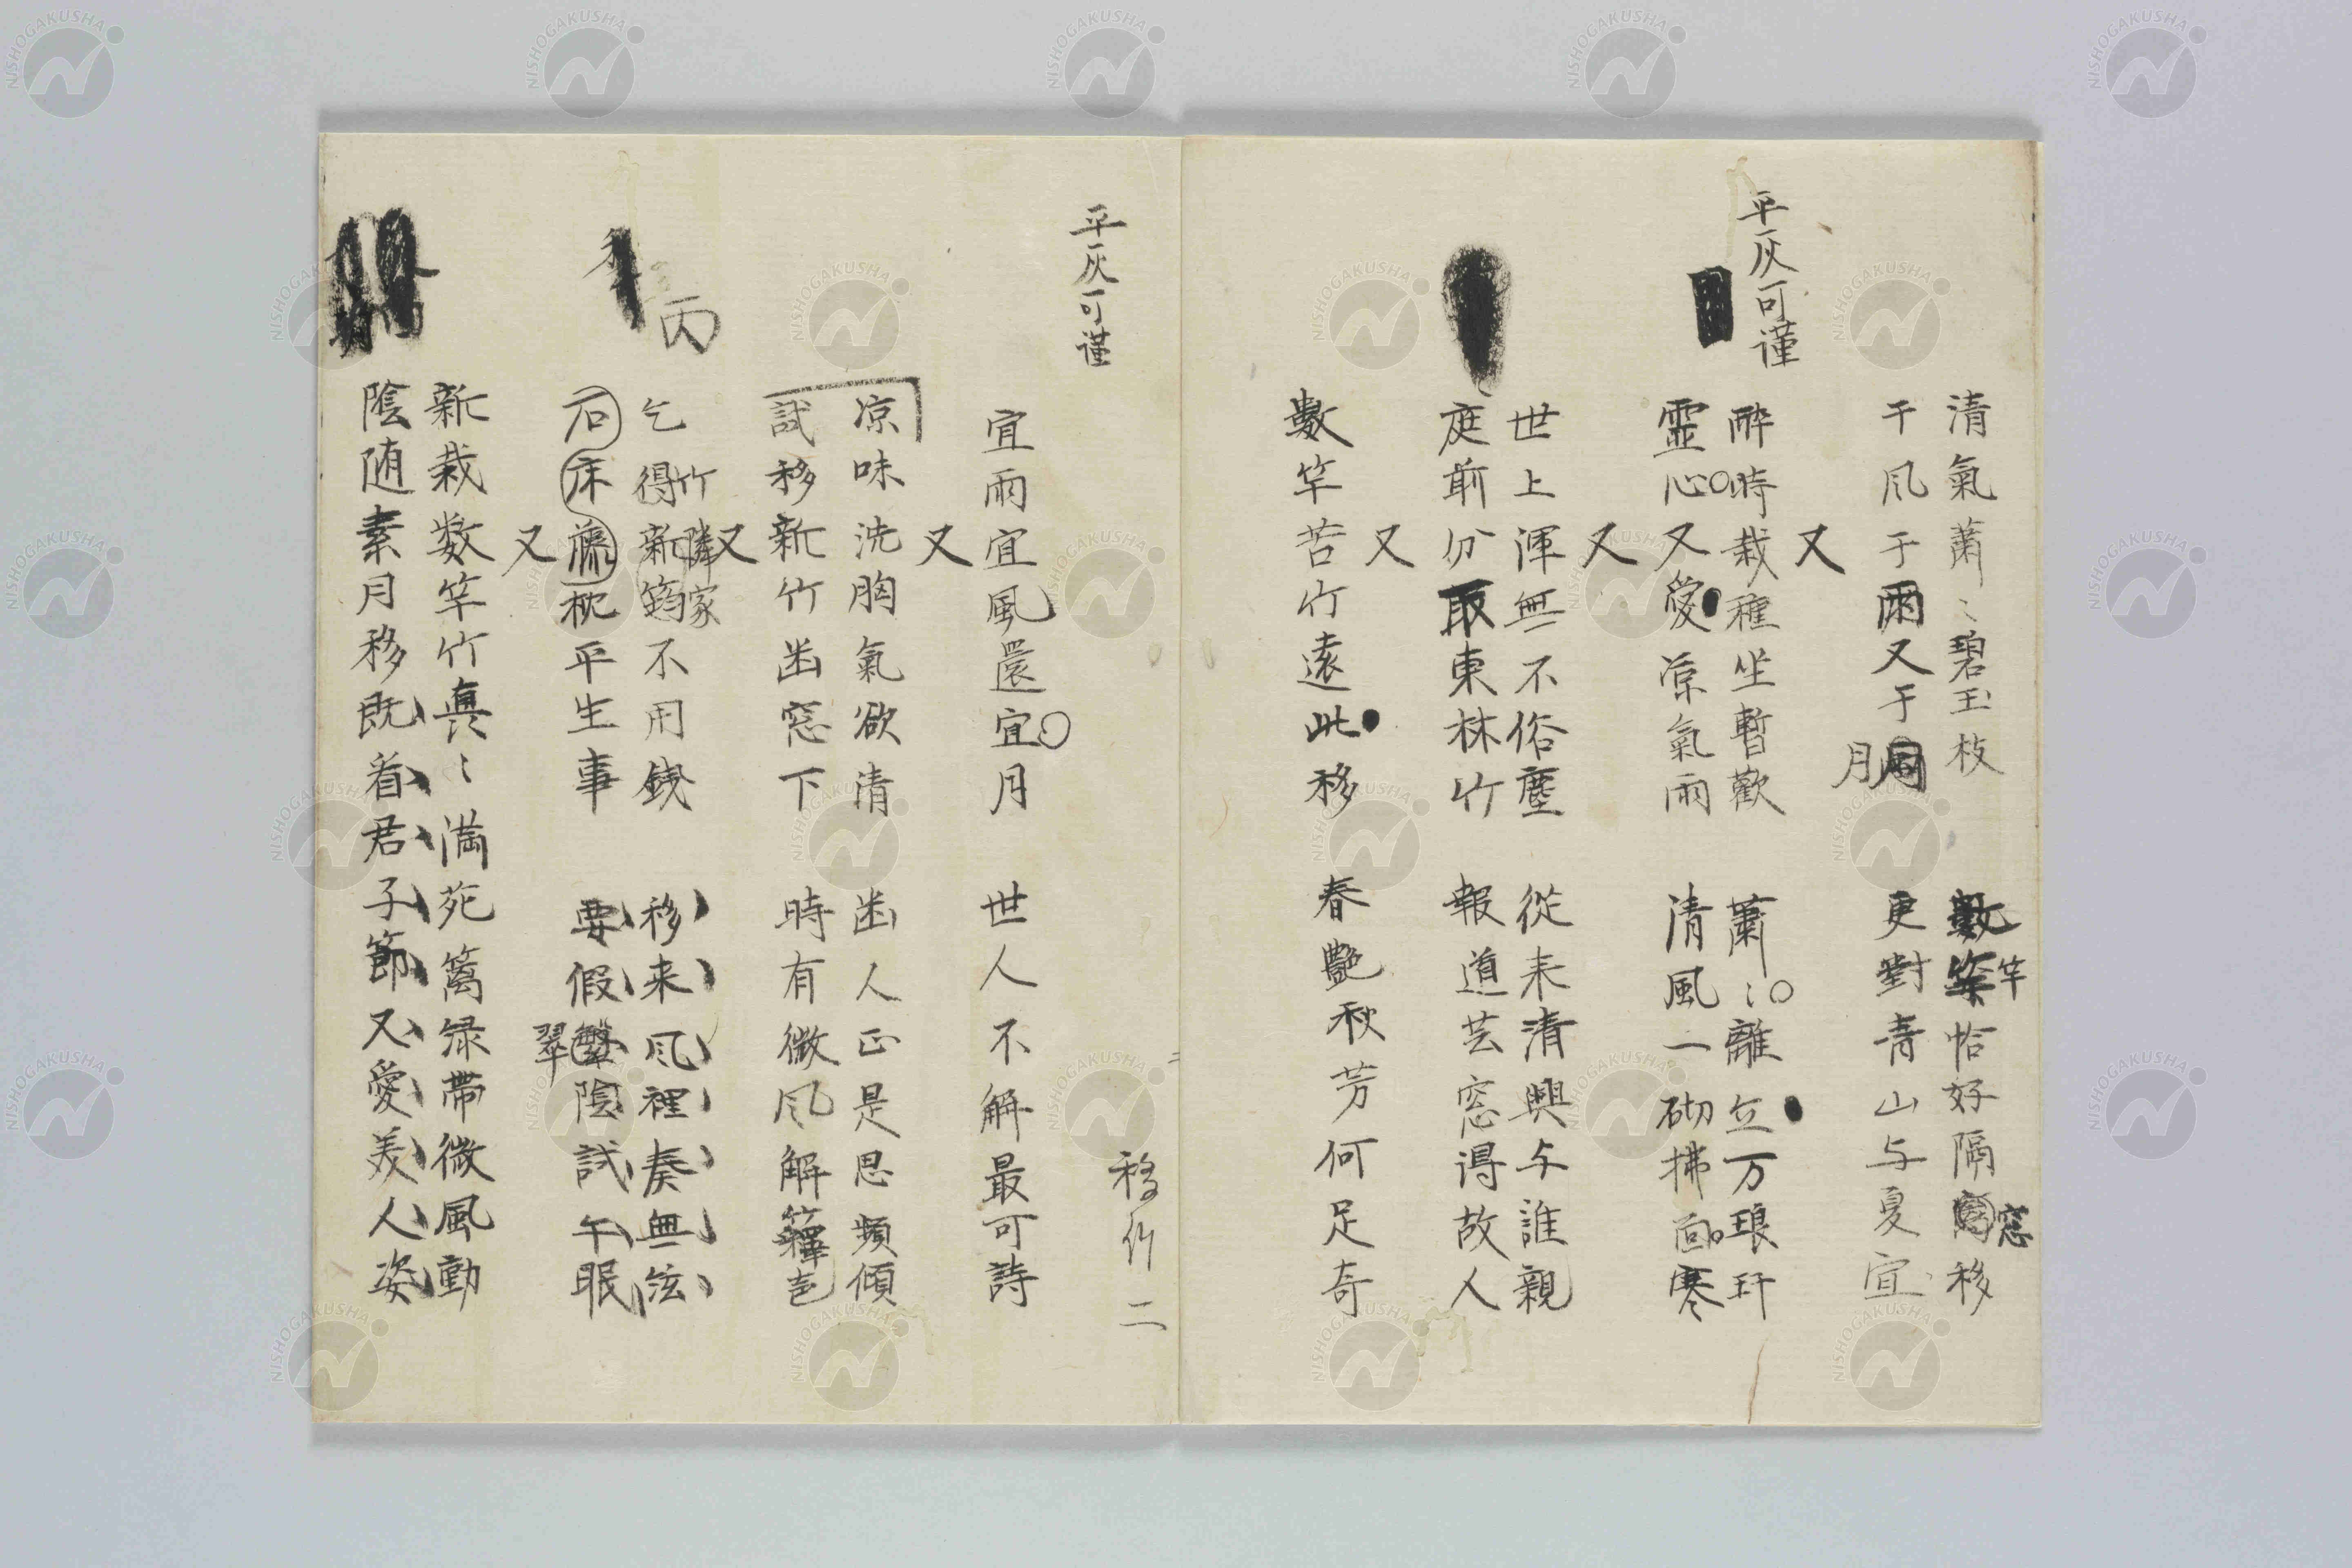 清氣蕭〻碧玉枝　數竿恰好隔窓移
竿
窓
于风于雨又于月　更對青山与夏宜
又
平灰可謹
醉時栽種坐暫歡　蕭〻離立万琅玕
靈心又愛凉氣雨　清風一砌拂面寒
又
世上渾無不俗塵　從来清興与誰親
庭前分取東林竹　報道芸窓得故人
又
數竿苦竹遠此移　春艶秋芳何足奇
移竹 二
平灰可謹
宜雨宜風還宜月　世人不解最可詩
又
凉味洗胸氣欲清　幽人正是思頻傾
試移新竹幽窓下　時有微风解籜包
又
丙
竹隣家
乞得新筠不用銭　移来风裡奏無絃
石床藤枕平生事　要假翠陰試午眠
又
新栽数竿竹真〻　満苑篱緑帯微風動
陰随素月移既看君子節又愛美人姿
NISHOGAKUSHA